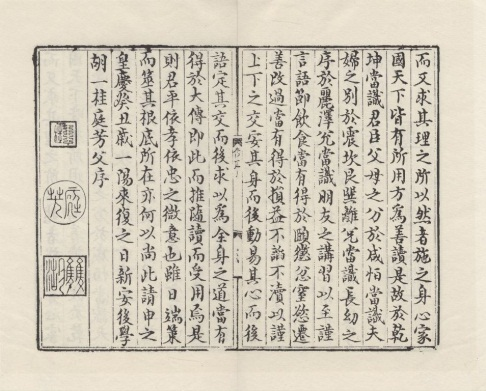 而又求其理之所以然者施之身心家
國天下皆有所用方為善讀是故於乾
坤當識君臣父母之分於咸恒當識夫
婦之別於震坎艮巽離兌當識長幼之
序於麗澤兌當識朋友之講習以至謹
言語節飲食當有得於頤懲忿窒慾遷
善改過當有得於損益不諂不瀆以謹
上下之交安其身而後動易其心而後
語定其交而後求以為全身之道當有
得於大傳即此而推隨讀而受用焉是
則君平依孝依忠之微意也雖日端策
而筮其根底所在亦何以尚此請申之
皇慶癸丑歲一陽來復之日新安後學
胡一桂庭芳父序
庭芳
雙湖